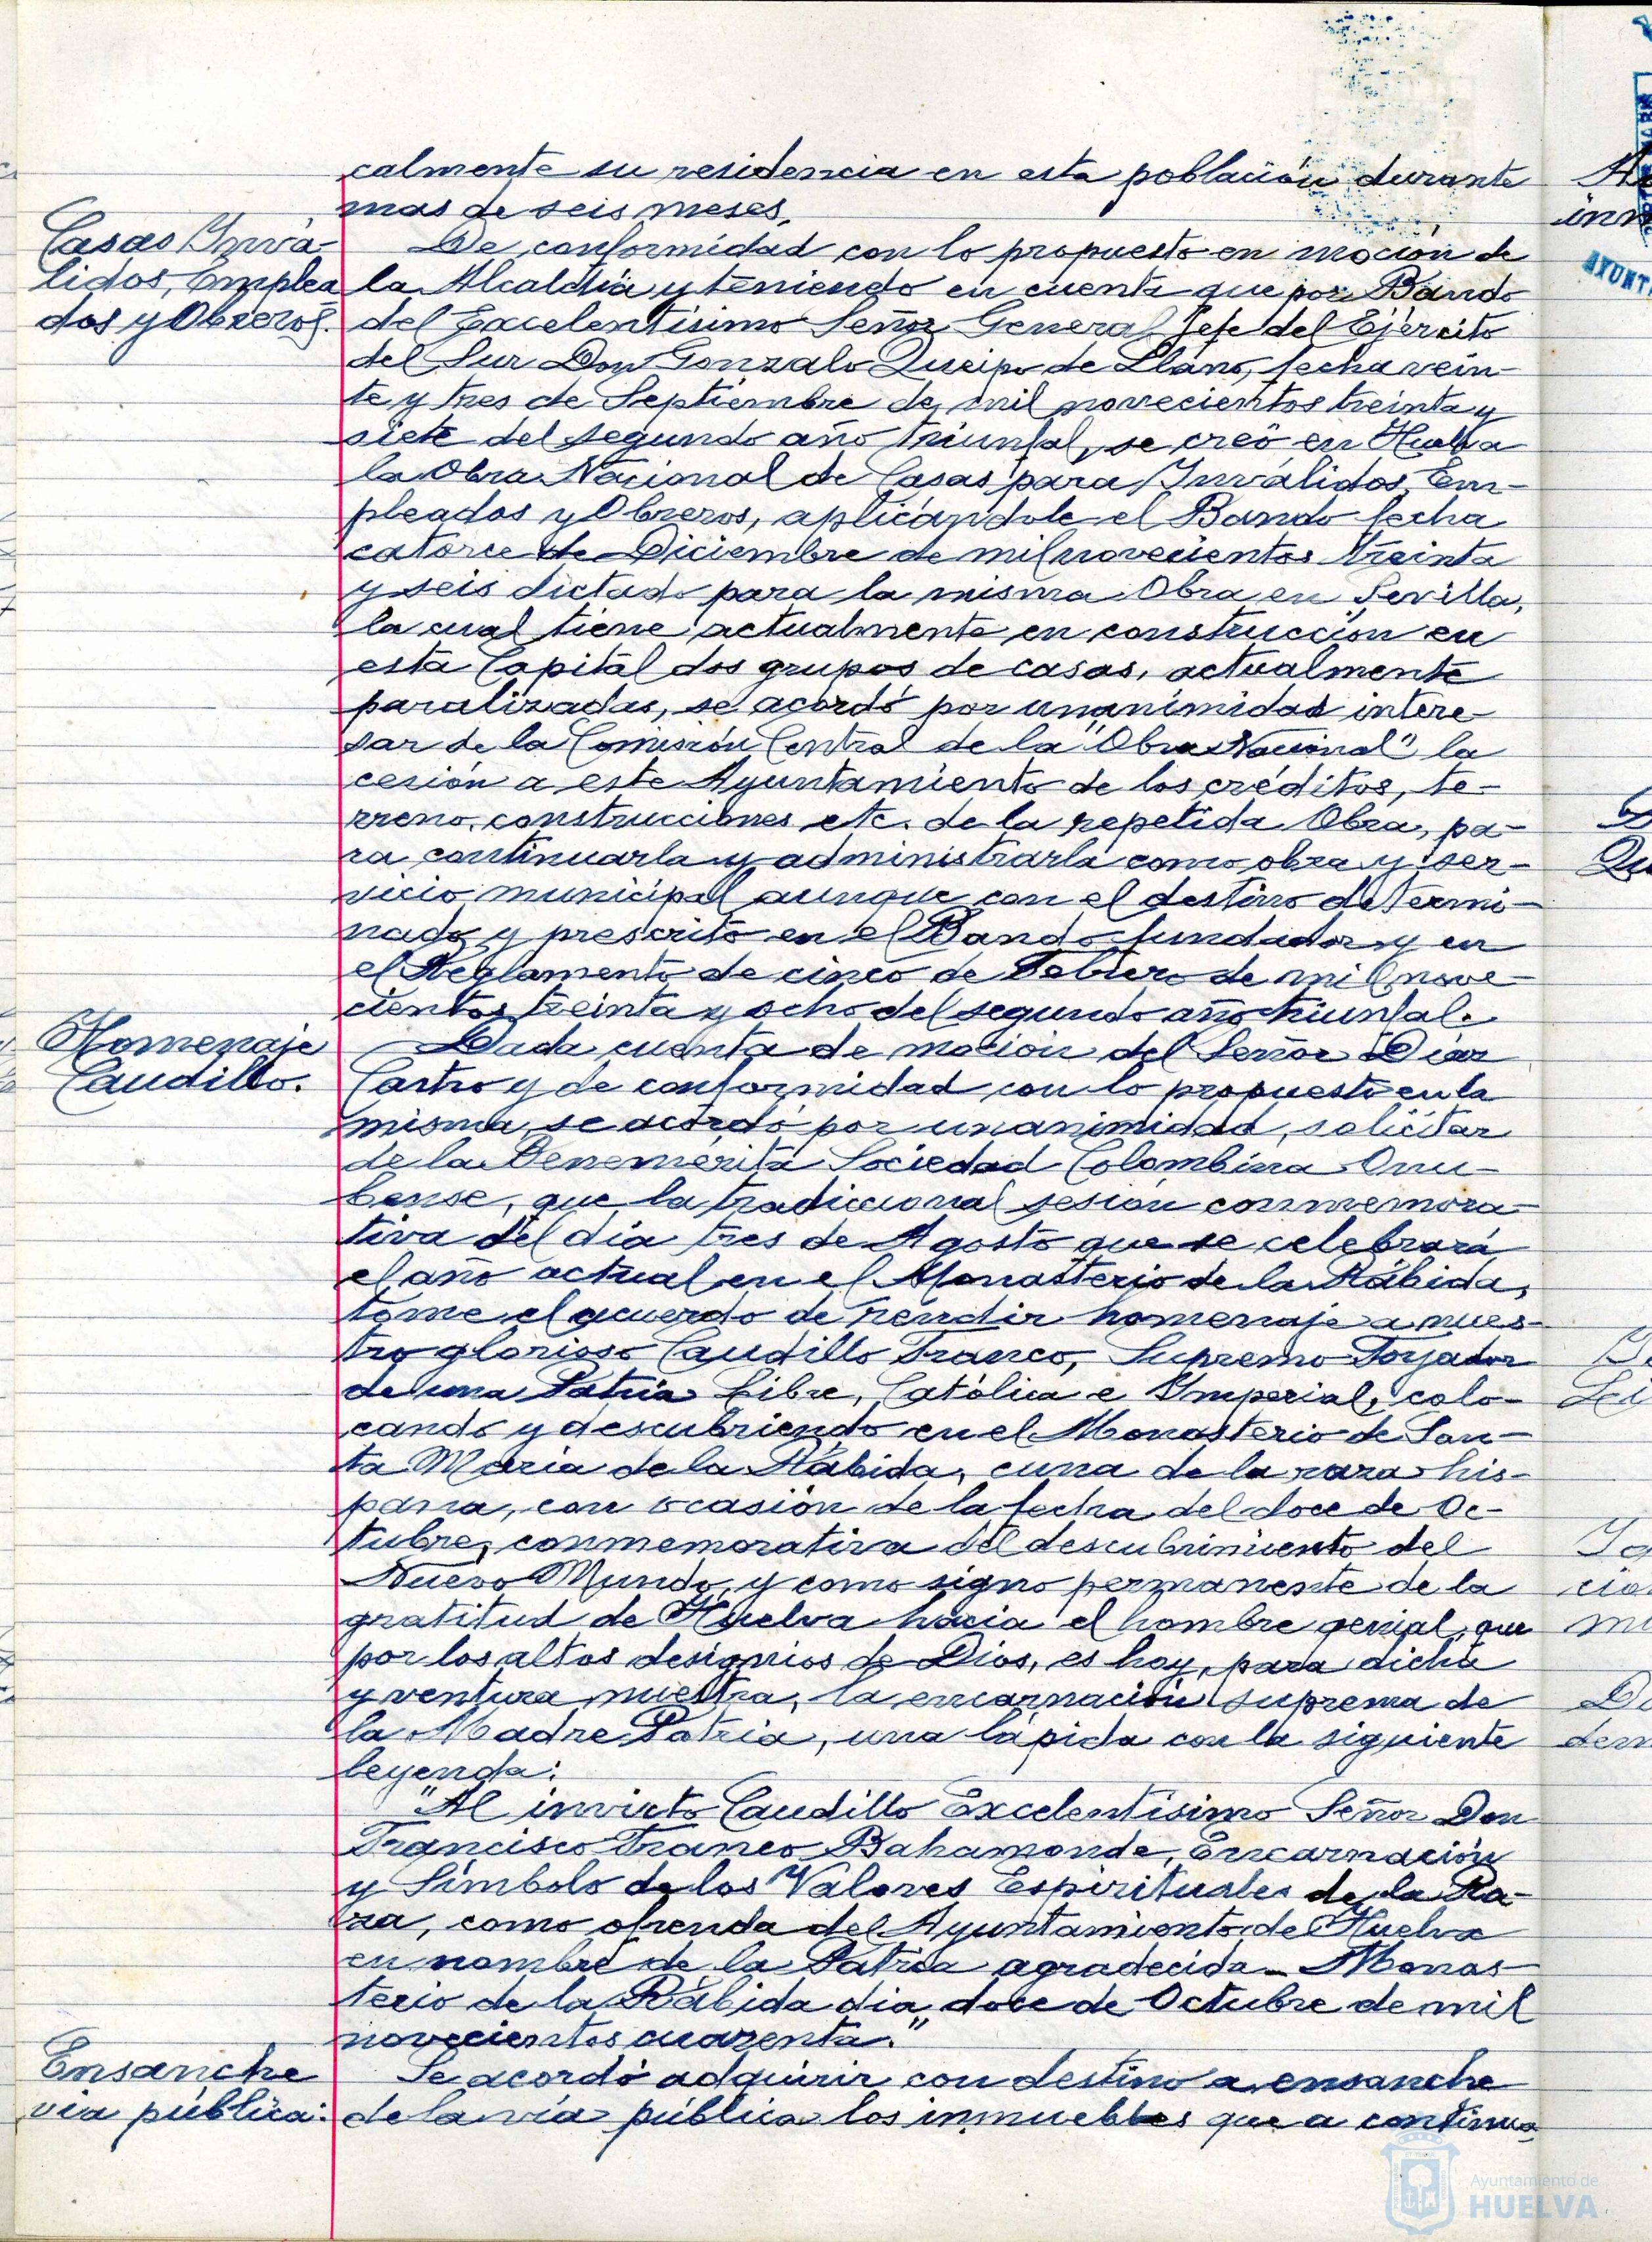 calmente su residencia en esta población durante
mas de seis meses.
Casas Invá-
lidos, Emplea
dos y Obreros.
De conformidad con lo propuesto en moción de
la Alcaldía y teniendo en cuenta que por Bando
del Excelentísimo Señor General Jefe del Ejército
del Sur Don Gonzalo Queipo de Llano, fecha vein-
te y tres de Septiembre de mil novecientos treinta y
siete del segundo año triunfal, se creó en Huelva
la Obra Nacional de Casas para Inválidos, Em-
pleados y Obreros, aplicándole el Bando fecha
catorce de Diciembre de mil novecientos treinta
y seis dictado para la misma Obra en Sevilla,
la cual tiene actualmente en construcción en
esta Capital dos grupos de casas, actualmente
paralizadas, se acordó por unanimidad intere-
sar de la Comisión Central de la "Obra Nacional" la
cesión a este Ayuntamiento de los créditos, te-
rreno, construcciones etc. de la repetida Obra, pa-
ra continuarla y administrarla como obra y ser-
vicio municipal aunque con el destino determi-
nado y prescrito en el Bando fundador y en
el Reglamento de cinco de Febrero de mil nove-
cientos treinta y ocho del segundo año triunfal.
Homenaje
Caudillo.
Dada cuenta de moción del Señor Díaz
Castro y de conformidad con lo propuesto en la
misma, se acordó por unanimidad, solicitar
de la Benemérita Sociedad Colombina Onu-
bense, que la tradiccional sesión conmemora-
tiva del día tres de Agosto que se celebrará
el año actual en el Monasterio de la Rábida,
tome el acuerdo de rendir homenaje a nues-
tro glorioso Caudillo Franco, Supremo Forjador
de una Patria Libre, Católica e Imperial, colo-
cando y descubriendo en el Monasterio de San-
ta María de la Rábida, cuna de la raza his-
pana, con ocasión de la fecha del doce de Oc-
tubre, conmemorativa del descubrimiento del
Nuevo Mundo, y como signo permanente de la
gratitud de Huelva hacia el hombre genial, que
por los altos designios de Dios, es hoy, para dicha
y ventura nuestra, la encarnación suprema de
la Madre Patria, una lápida con la siguiente
leyenda:
"Al invicto Caudillo Excelentísimo Señor Don
Francisco Franco Bahamonde, Encarnación
y Símbolo de los Valores Espirituales de la Ra-
za, como ofrenda del Ayuntamiento de Huelva
en nombre de la Patria agradecida.- Monas-
terio de la Rábida día doce de Octubre de mil
novecientos cuarenta."
Ensanche
via pública:
Se acordó adquirir con destino a ensanche
de la vía pública los inmuebles que a continua-
Ayuntamiento de
HUELVA